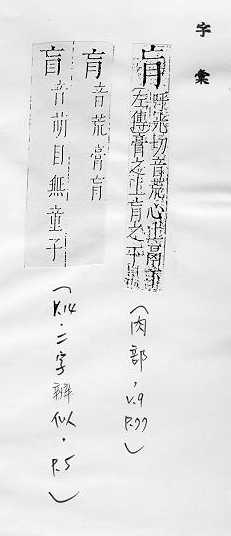 字彙
肓 呼光切音荒心上鬲下
左傳膏之上肓之下
（肉部，v.9
P.77）
肓 音荒膏肓
盲 音萌目無童子
（V.14．二字辨似．
P.5）